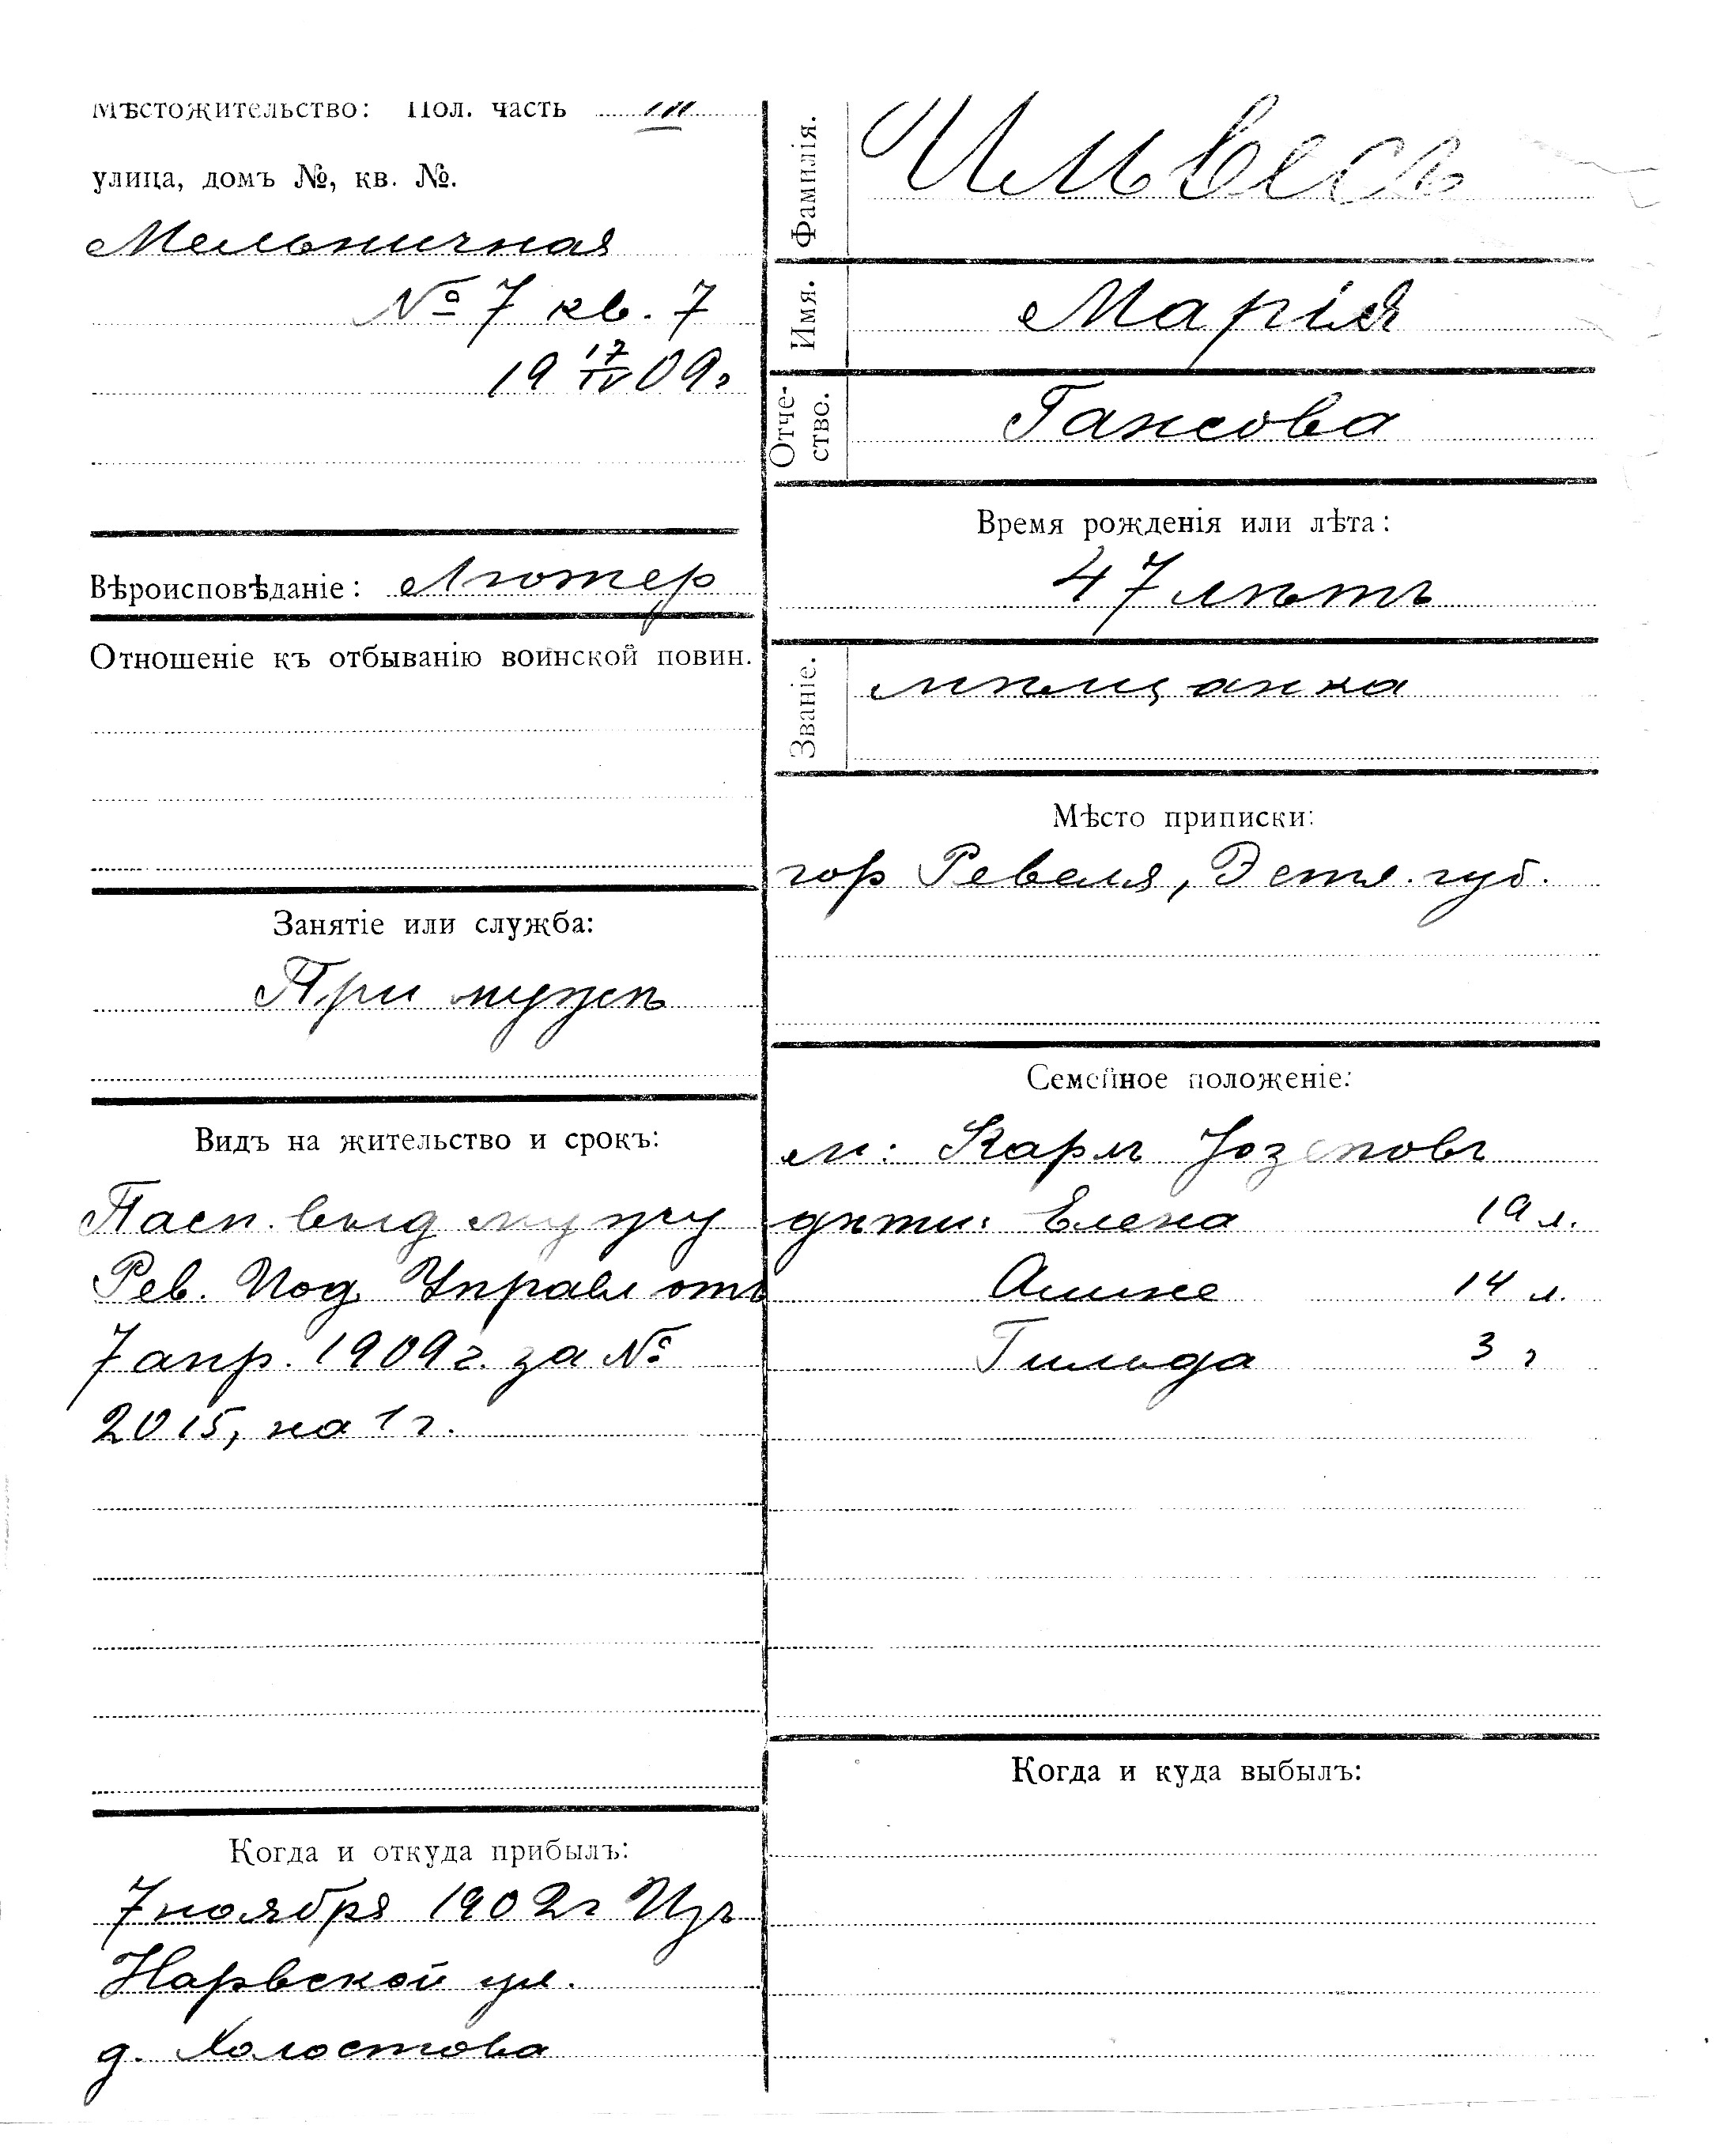 Мѣстожительство: Пол. часть III
улица, домъ №, кв. №.
Мельничная
№ 7 кв. 7
19 17/IV 09 г
Вѣроисповѣданіе: Лютер
Отношеніе къ отбыванію воинской повин.
Занятіе или служба:
При мужѣ
Видъ на жительство и срокъ:
Пасп. выд мужу
Рев. Под. Управл отъ
7 апр. 1909 г. за №
2015, на 1 г.
Когда и откуда прибылъ:
7 ноября 1902 г Изъ
Нарвской ул.
д. Холостова
Фамилія. Ильвесъ
Имя. Марія
Отче-
ство. Гансова
Время рожденія или лѣта:
47 лѣтъ
Званіе. мѣщанка
Мѣсто приписки:
гор Ревеля, Эстл. губ.
Семейное положеніе:
м: Карлъ Юзеповъ
дѣти: Елена 19 л.
Алине 14 л.
Гильда 3 г
Когда и куда выбылъ: